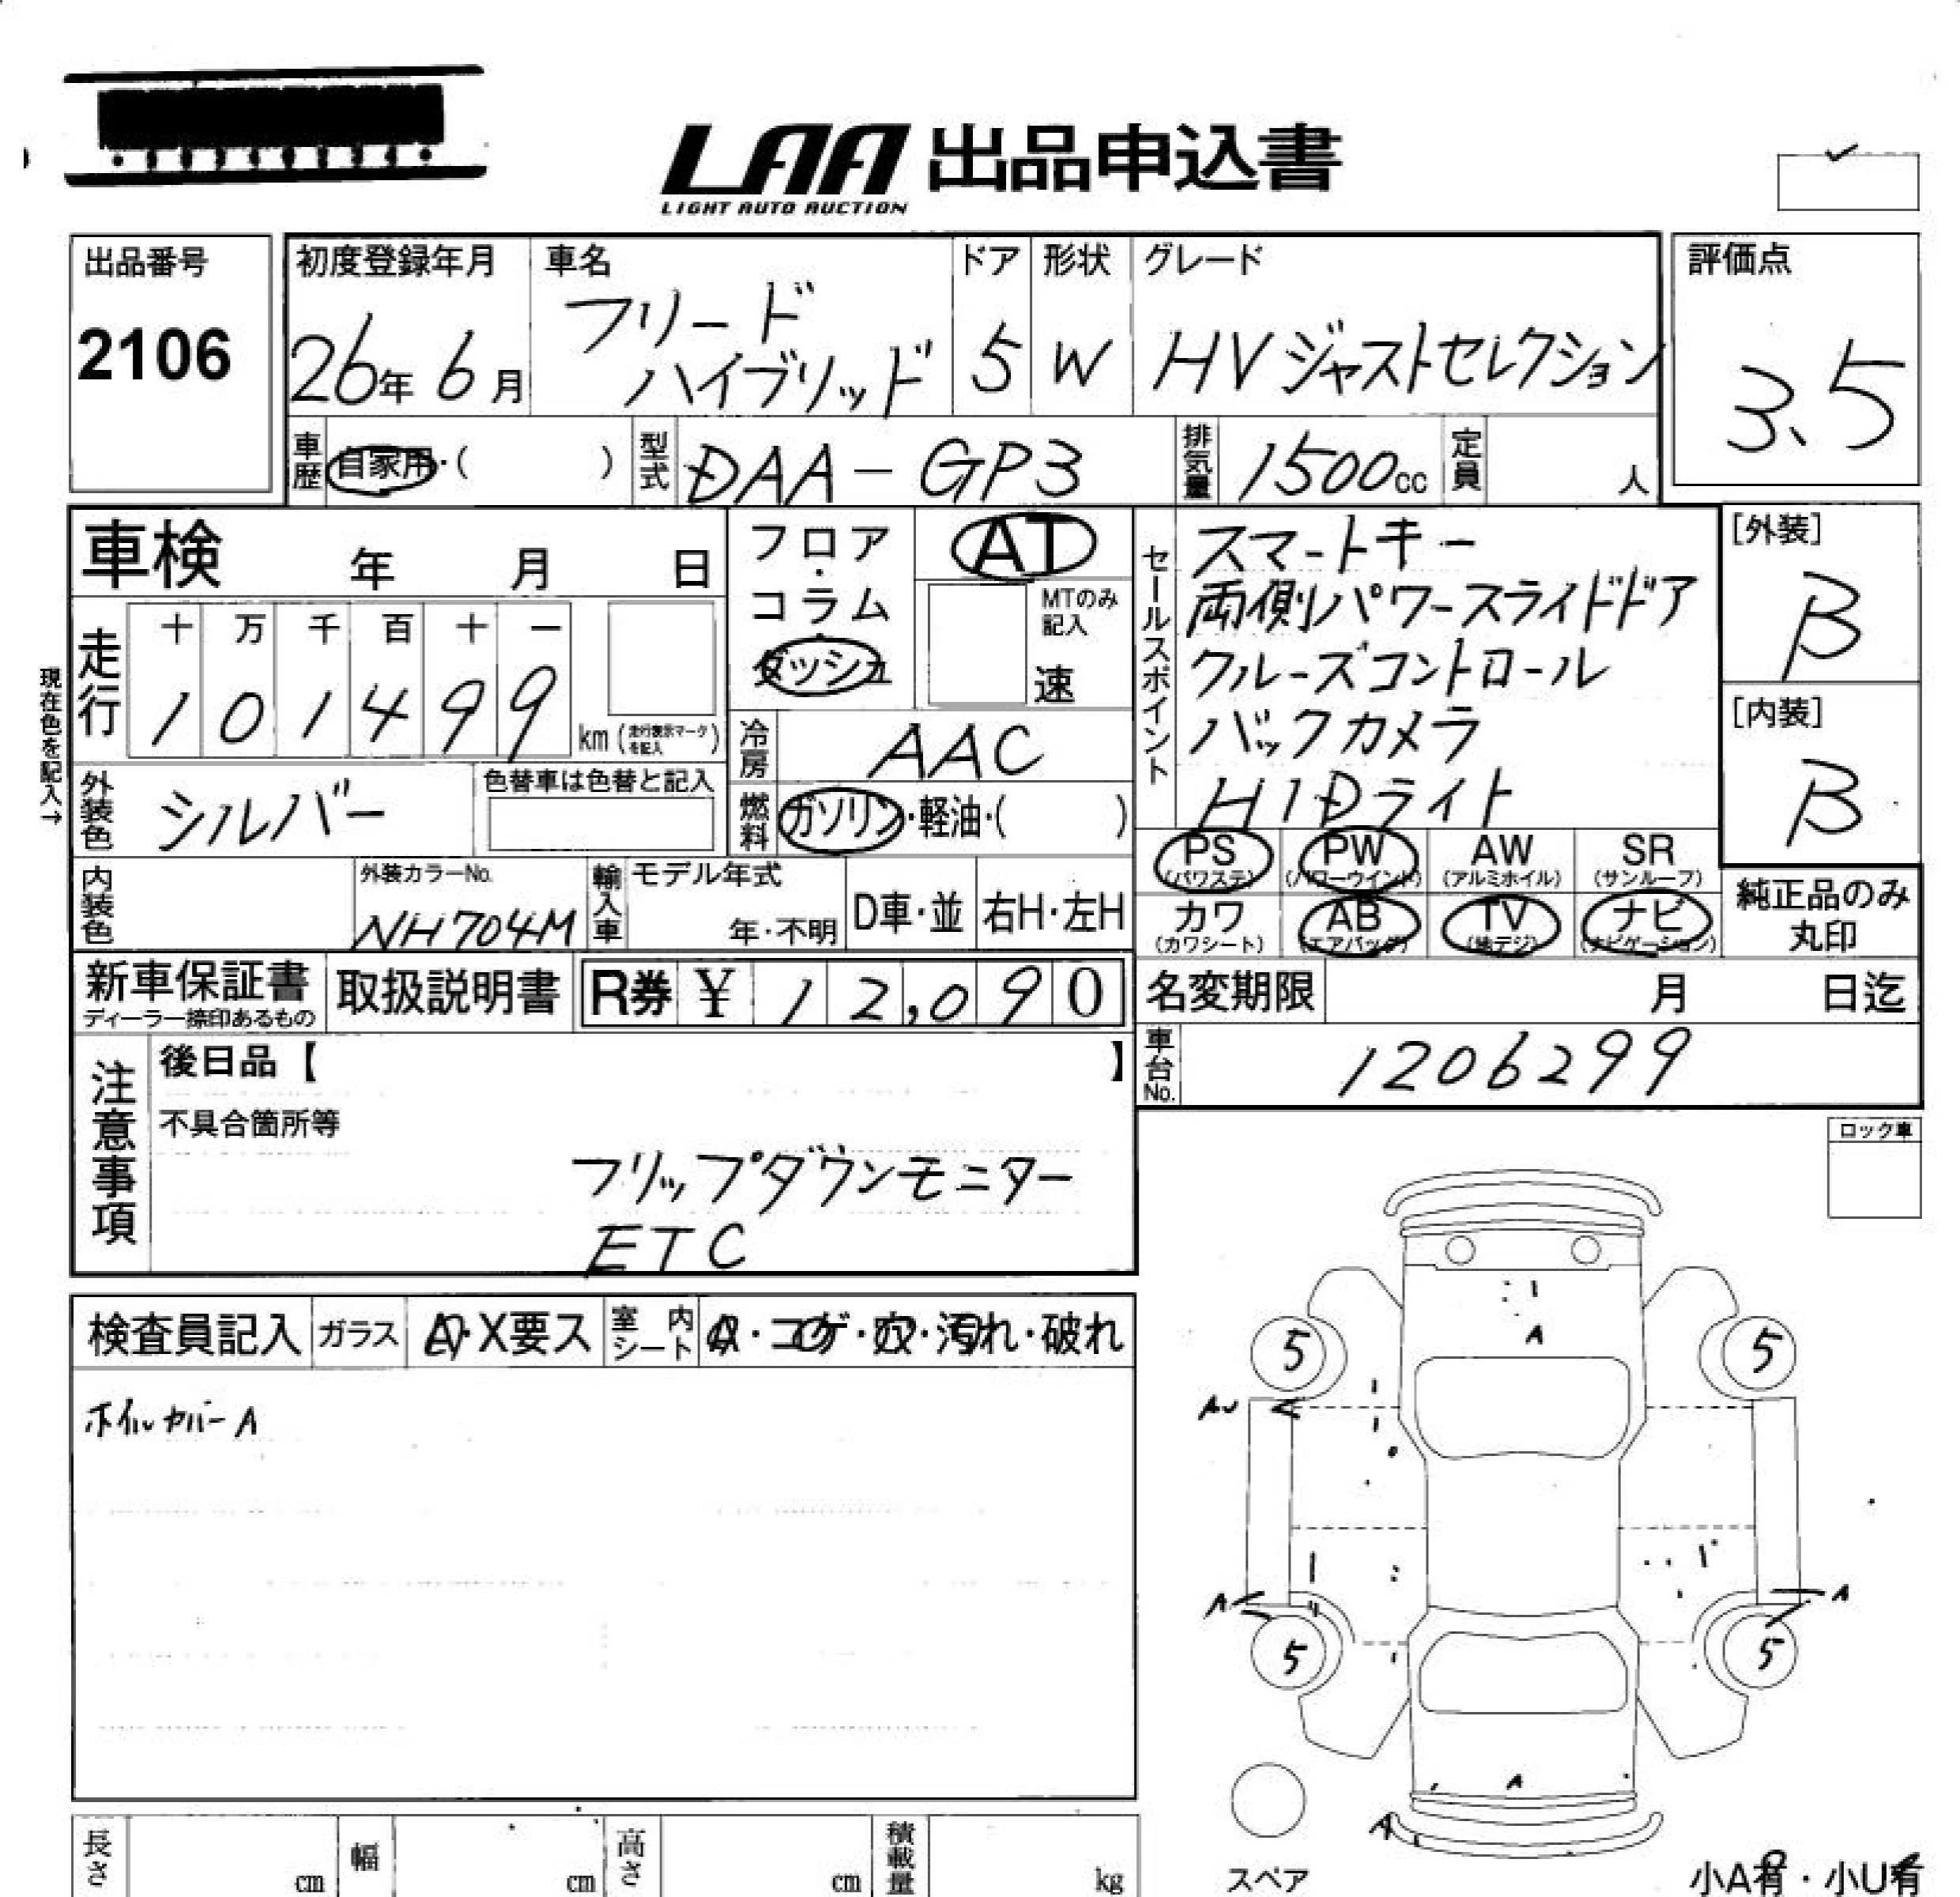 LAA 出品申込書
LIGHT AUTO AUCTION
出品番号
2106
初度登録年月
26年 6月
車名
フリード
ハイブリッド
ドア
5
形状
W
グレード
HVジャストセレクション
評価点
3.5
車歴 自家用・( )
型式 DAA-GP3
排気量 1500cc
定員 人
車検 年 月 日
現在色を記入→
走行
十 万 千 百 十 一
1 0 1 4 9 9
km(走行表示マークを記入)
外装色 シルバー
色替車は色替と記入
内装色
外装カラーNo.
NH704M
フロア・コラム・ダッシュ
AT
MTのみ記入
速
冷房 AAC
燃料 ガソリン・軽油・( )
輸入車
モデル年式
年・不明
D車・並
右H・左H
セールスポイント
スマートキー
両側パワースライドドア
クルーズコントロール
バックカメラ
HIDライト
[外装]
B
[内装]
B
PS
(パワステ)
PW
(パワーウインド)
AW
(アルミホイル)
SR
(サンルーフ)
カワ
(カワシート)
AB
(エアバッグ)
TV
(地デジ)
ナビ
(ナビゲーション)
純正品のみ
丸印
新車保証書
ディーラー捺印あるもの
取扱説明書
R券 ¥ 12,090
名変期限 月 日迄
車台No. 1206299
注意事項
後日品【 】
不具合箇所等
フリップダウンモニター
ETC
ロック車
検査員記入
ガラス
・X要ス
室内シート
・コゲ・穴・汚れ・破れ
ホイルカバーA
A
5
5
A
A
5
5
A
A
A
スペア
小A有・小U有
長さ cm
幅 cm
高さ cm
積載量 kg